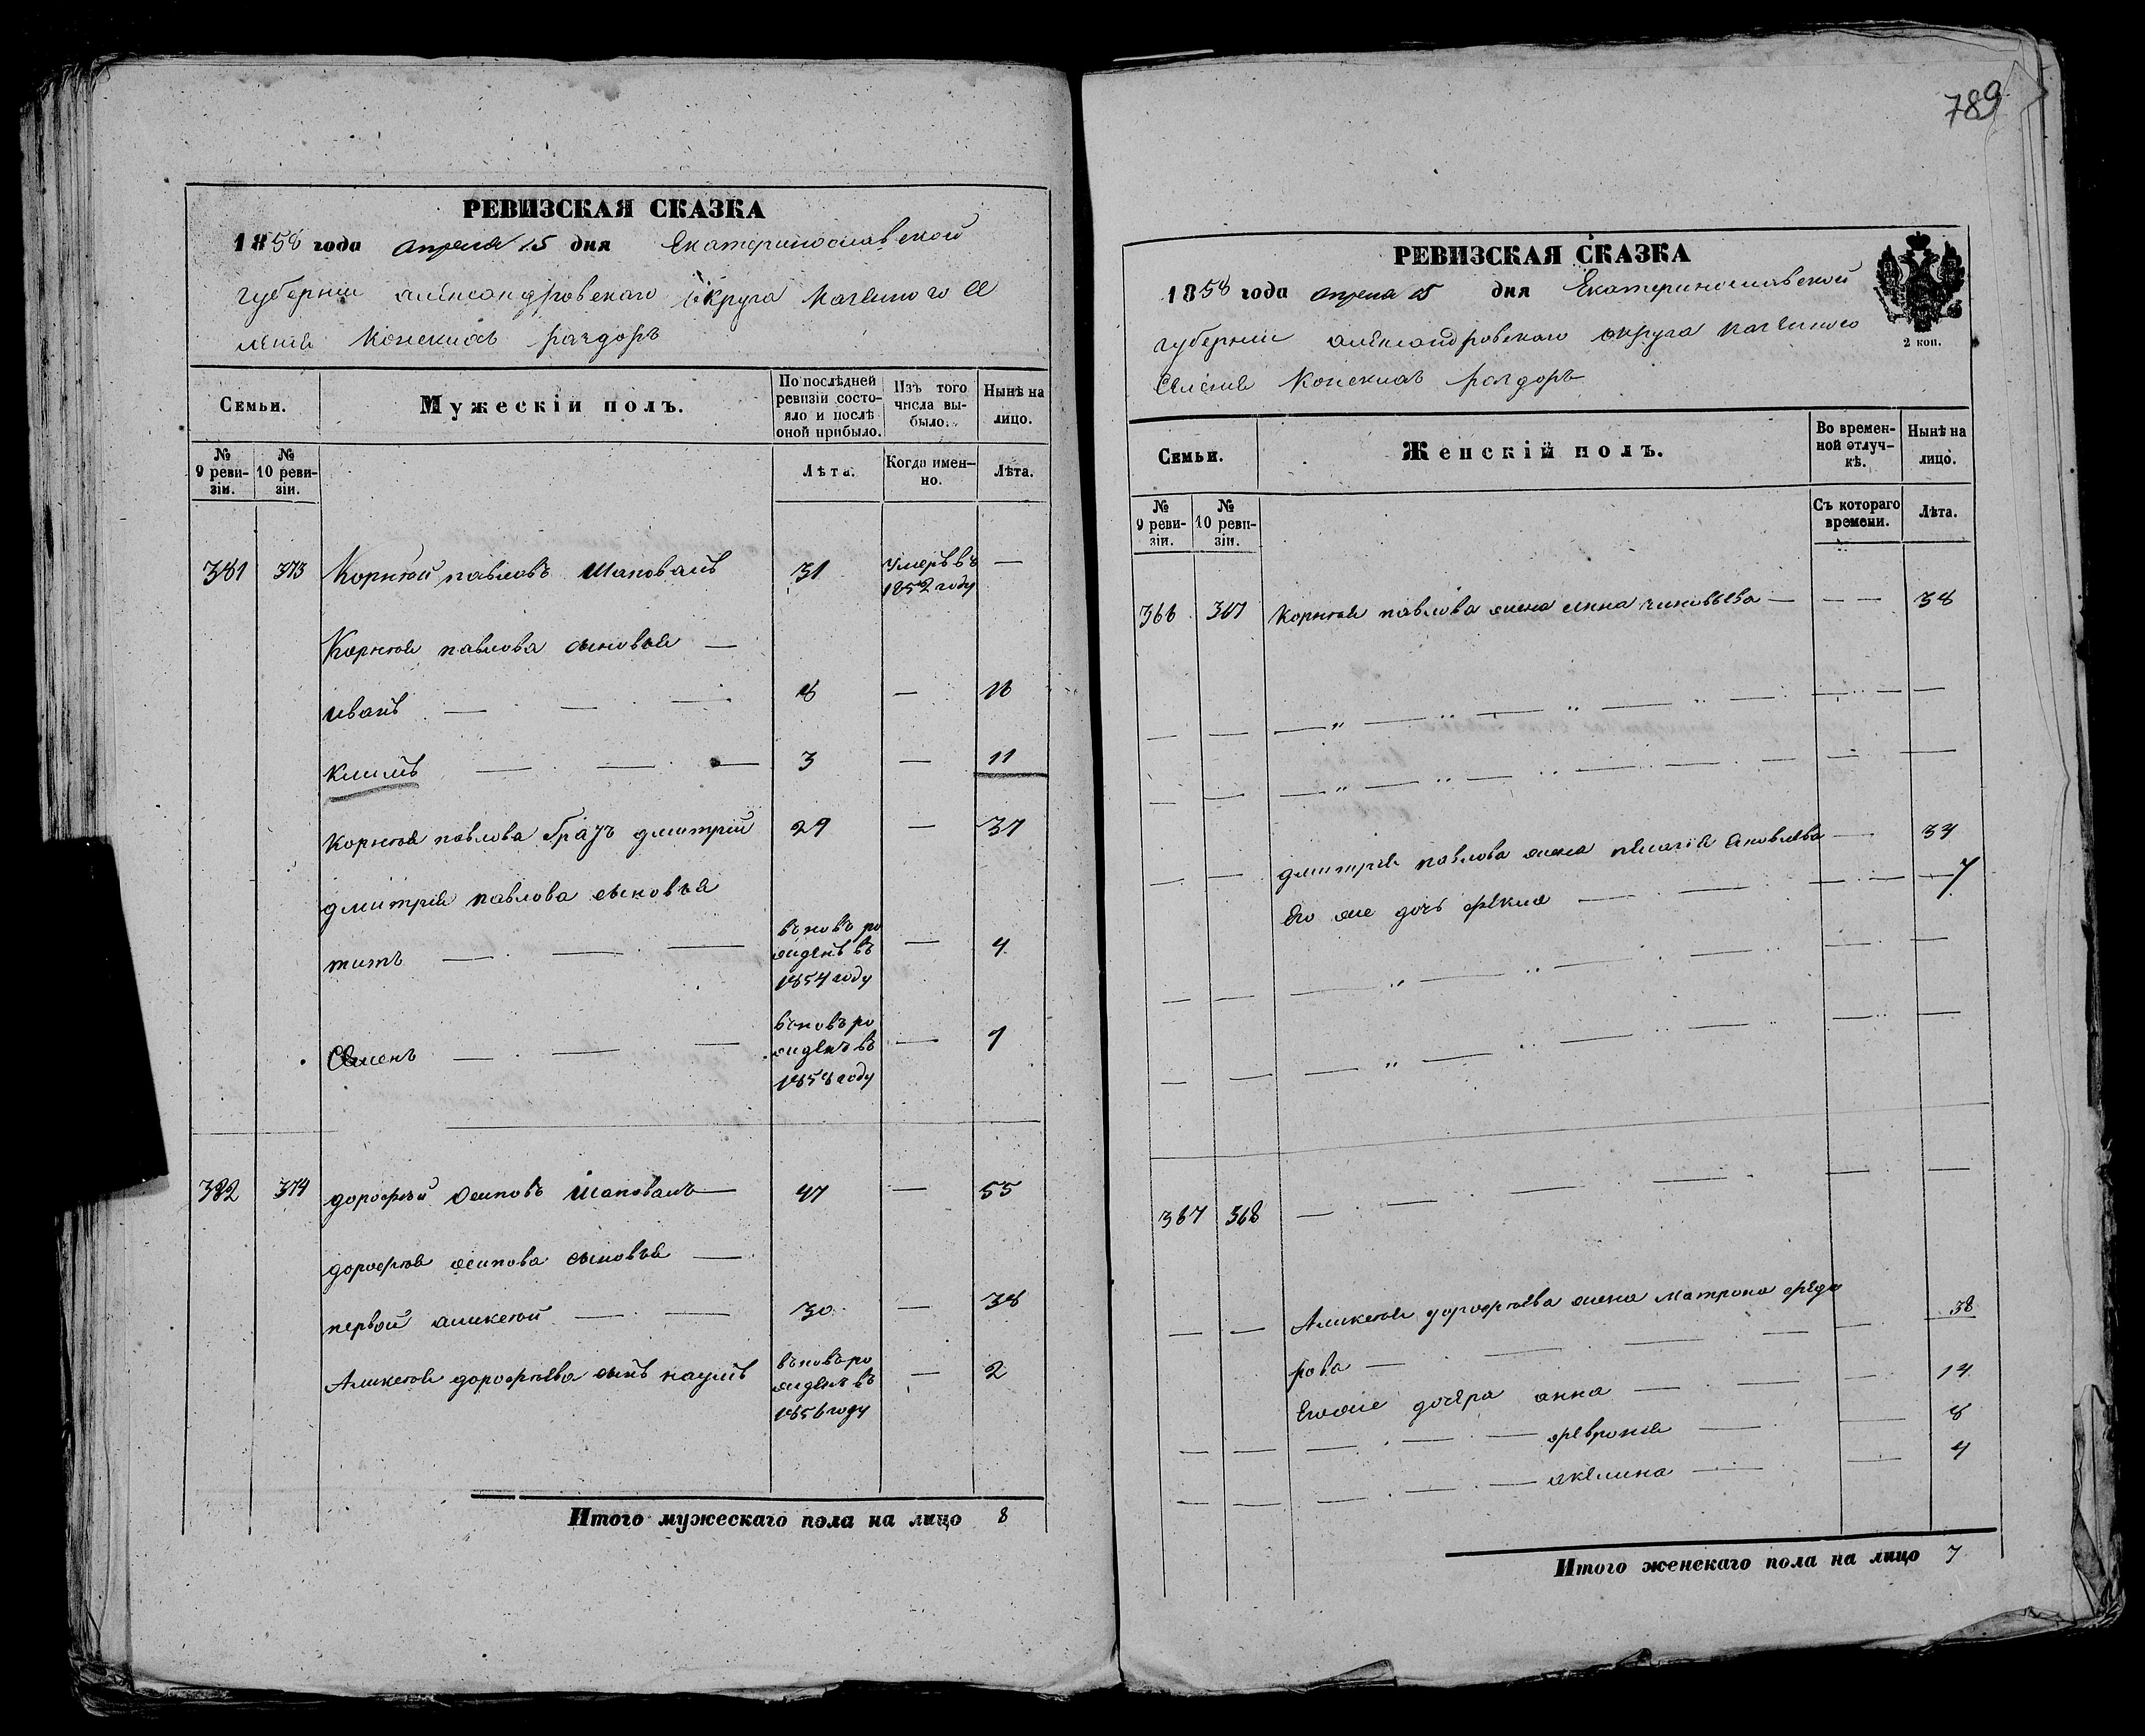 789
РЕВИЗСКАЯ СКАЗКА
1858 года апреля 15 дня Екатеринославской
губернии александровского округа казенного се
ления Конскихъ раздоръ
Семьи.
Мужескій полъ.
По послѣдней ревизіи состояло и послѣ оной прибыло.
Изъ того числа выбыло.
Нынѣ на лицо.
№ 9 ревизіи.
№ 10 ревизіи.
Лѣта.
Когда именно.
Лѣта.
381 373 Корнѣй павловъ Шаповалъ 31 Умеръ въ 1852 году —
Корнѣя павлова сыновья —
иванъ — 8 — 16
климъ — 3 — 11
Корнѣя павлова братъ дмитрій 29 — 37
дмитрія павлова сыновья
титъ — вновь рожденъ въ 1854 году — 4
Семенъ — вновь рожденъ въ 1858 году — 1
382 374 дорофѣй осиповъ Шаповалъ — 47 — 55
дорофѣя осипова сыновья —
первой аникѣй — 30 — 38
Аникѣя дорофѣева сынъ наумъ вновь рожденъ въ 1856 году — 2
Итого мужескаго пола на лицо 8
РЕВИЗСКАЯ СКАЗКА
1858 года апреля 15 дня Екатеринославской
губернии александровского округа казенного
селения Конскихъ раздоръ
2 коп.
Семьи.
Женскій полъ.
Во временной отлучкѣ.
Нынѣ на лицо.
№ 9 ревизіи.
№ 10 ревизіи.
Съ котораго времени.
Лѣта.
366 367 Корнѣя павлова жена анна зиновьева — — — 38
дмитрія павлова жена пелагія яковлева — 34
Его же дочь фекла — 7
367 368 —
Аникѣя дорофѣева жена матрона федо
рова — 38
Егоже дочера анна — 14
— февронія — 8
— акелина — 4
Итого женскаго пола на лицо 7